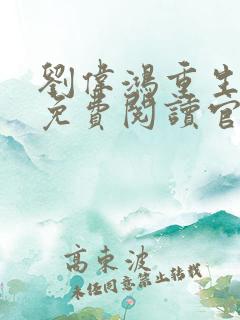 劉偉鴻重生
免費閱讀官
高東波
未經同意禁止轉載